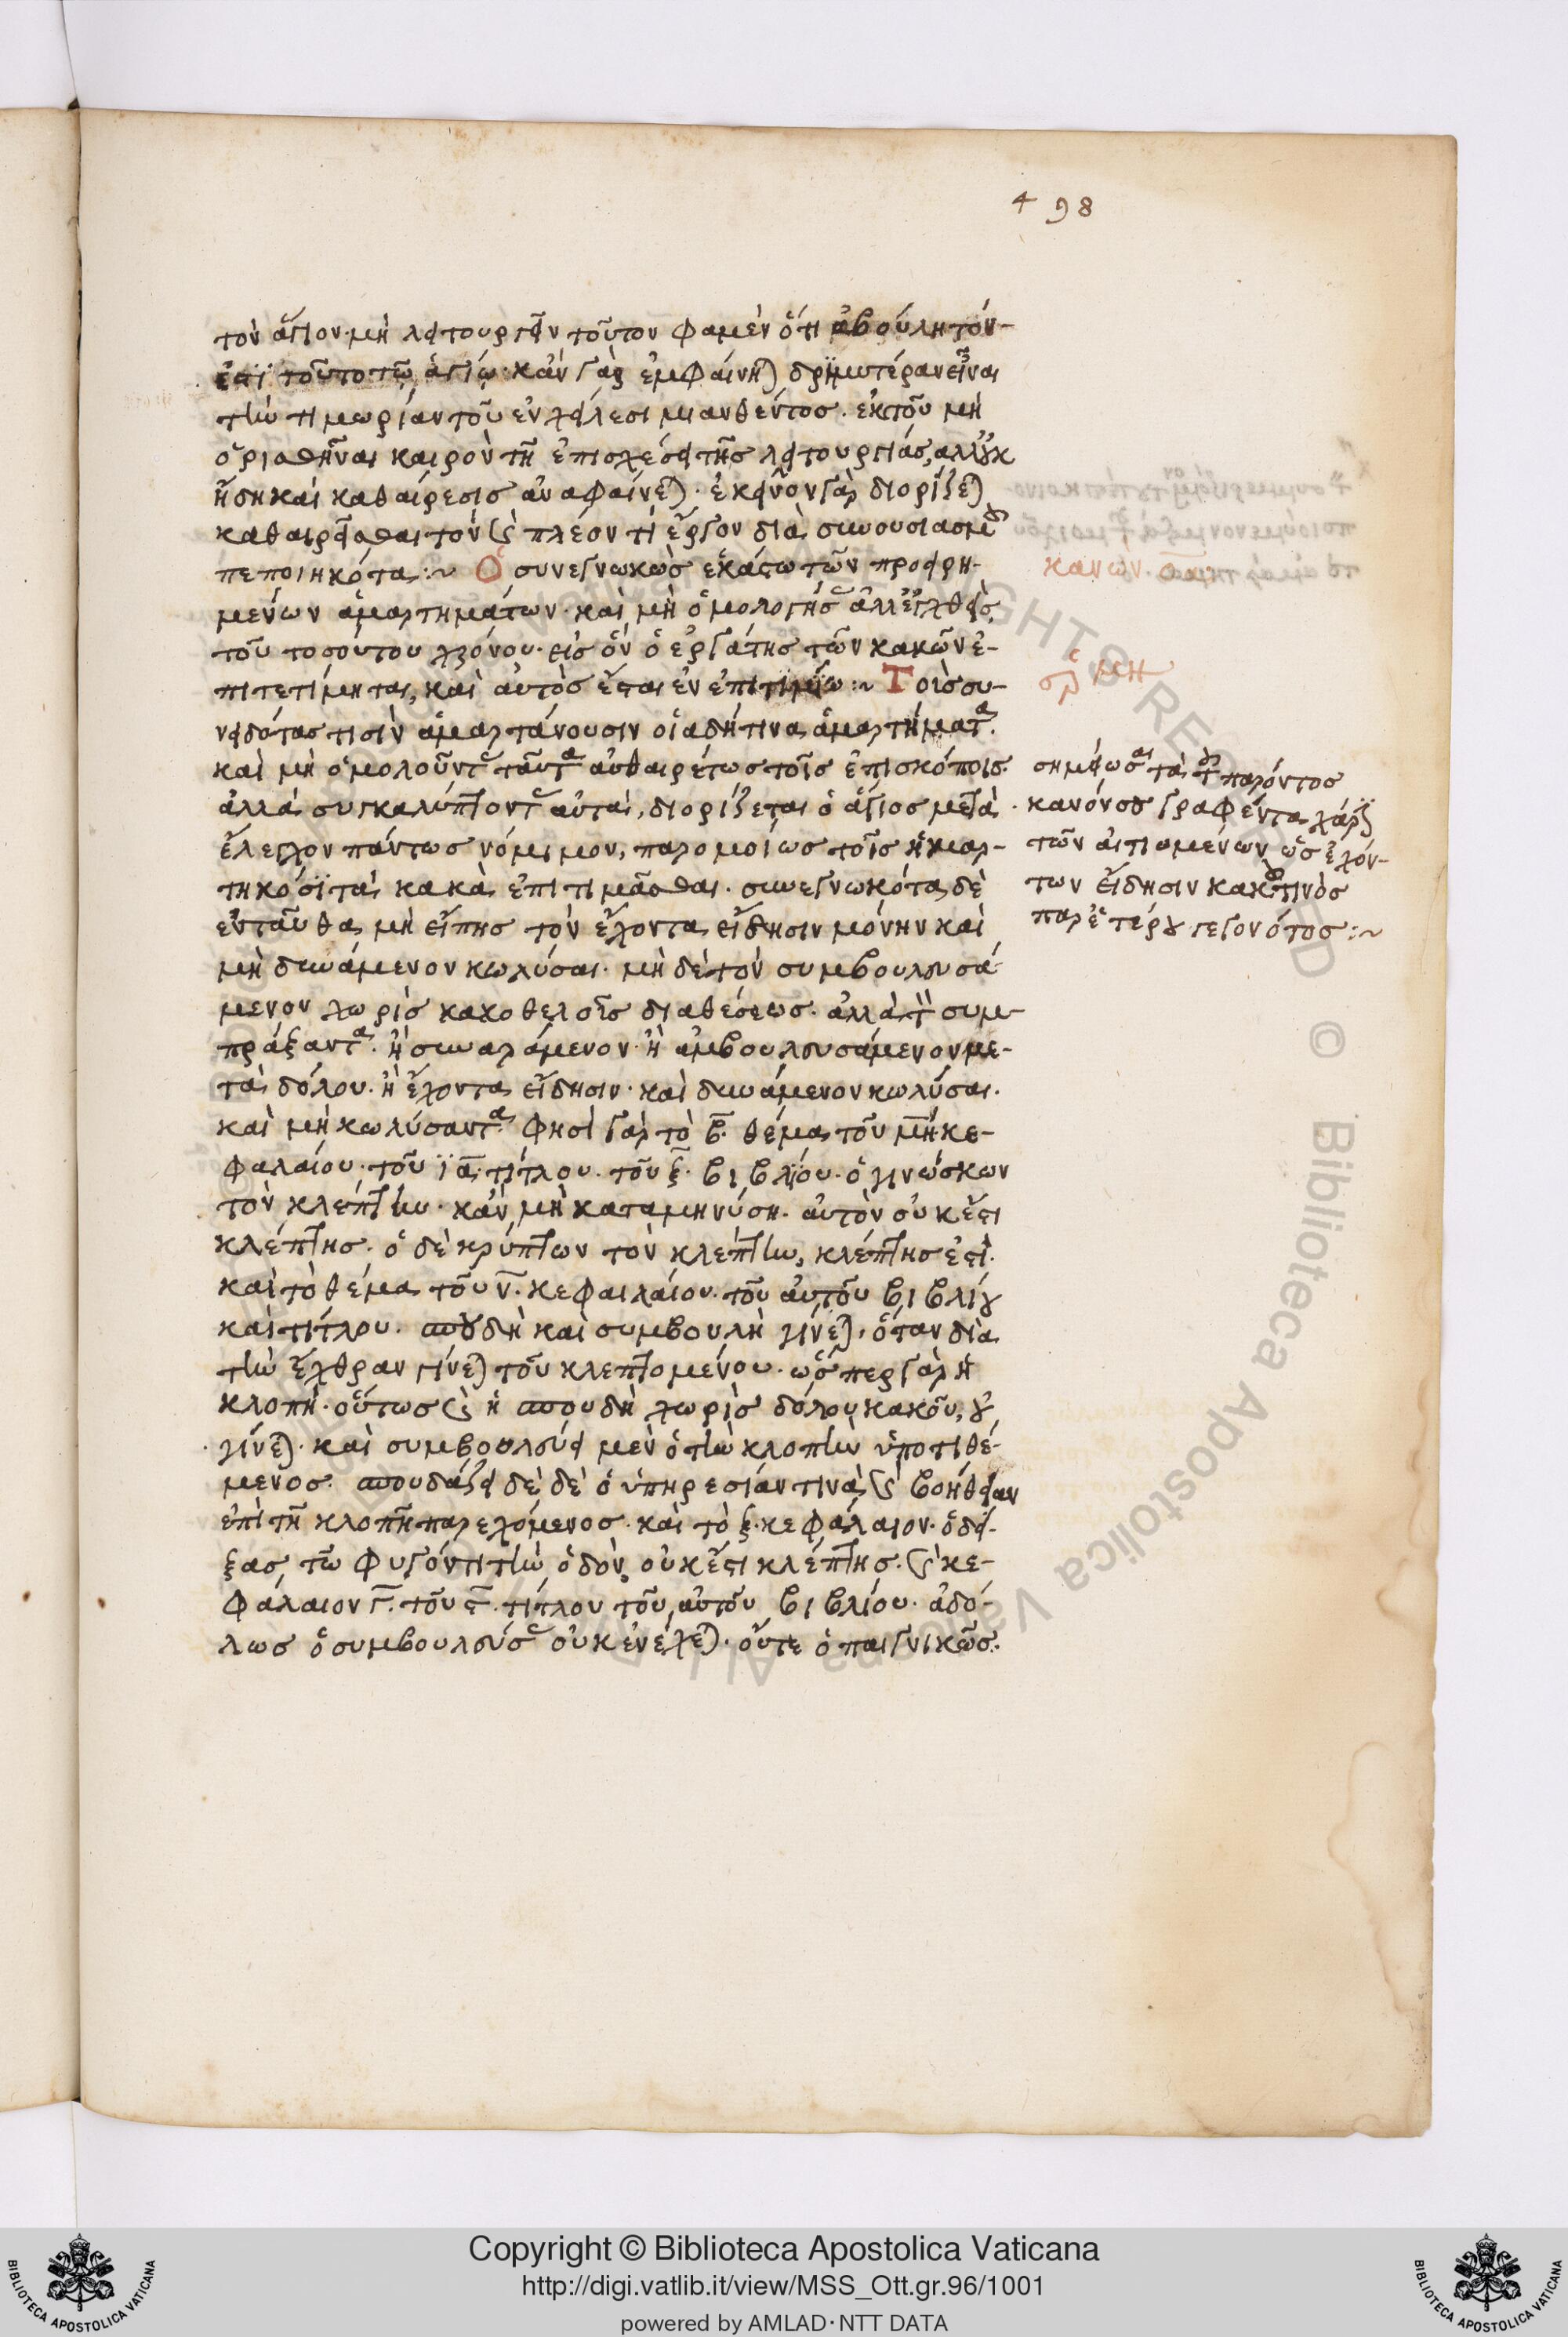 498
τὸν ἅγιον· μὴ λειτουργεῖν τοῦτον φαμὲν ὅτι ἀβούλητόν
ἐστι τοῦτο τῷ ἁγίῳ· κἂν γὰρ ἐμφαίνηται δριμυτέραν εἶναι
τὴν τιμωρίαν τοῦ ἐν χείλεσι μιανθέντος. ἐκ τοῦ μὴ
ὁρισθῆναι καιρὸν τῇ ἐπισχέσει τῆς λειτουργίας, ἀλλ' οὐκ
ἤδη καὶ καθαίρεσις ἀναφαίνεται· ἐκεῖνον γὰρ διορίζεται
καθαιρεῖσθαι τὸν καὶ πλέον τι ἔργον διὰ συνουσιασμοῦ
πεποιηκότα :~ Ὁ συνεγνωκὼς ἑκάστω τῶν προειρη-
μένων ἁμαρτημάτων· καὶ μὴ ὁμολογήσας ἀλλ' ἐλεγχθεὶς,
τοῦ τοσούτου χρόνου· εἰς ὃν ὁ ἐργάτης τῶν κακῶν ἐ-
πιτετίμηται, καὶ αὐτὸς ἔσται ἐν ἐπιτιμίω :~ Τοὺς συ-
νειδότας τισὶν ἁμαρτάνουσιν οἱαδήτινα ἁμαρτήματα.
καὶ μὴ ὁμολογοῦντας ταῦτα αὐθαιρέτως τοῖς ἐπισκόποις.
ἀλλὰ συγκαλύπτοντας αὐτὰ, διορίζεται ὁ ἅγιος μετὰ
ἔλεγχον πάντως νόμιμον, παρομοίως τοῖς ἡμαρ-
τηκόσι τὰ κακὰ ἐπιτιμᾶσθαι. συνεγνωκότα δὲ
ἐνταῦθα μὴ εἴπης τὸν ἔχοντα εἴδησιν μόνην καὶ
μὴ δυνάμενον κωλύσαι. μὴ δὲ τὸν συμβουλευσά
μενον χωρὶς κακοθελοῦς διαθέσεως. ἀλλὰ τὸν συμ-
πράξαντα. ἢ συναράμενον· ἢ συμβουλευσάμενον με-
τὰ δόλου. ἢ ἔχοντα εἴδησιν· καὶ δυνάμενον κωλῦσαι.
καὶ μὴ κωλύσαντα. φησὶ γὰρ τὸ β. θέμα τοῦ μη κε-
φαλαίου· τοῦ ια. τίτλου. τοῦ ξ. βιβλίου. ὁ γινώσκων
τὸν κλέπτην. κἂν μὴ καταμηνύση. αὐτὸν οὐκ ἔστι
κλέπτης. ὁ δὲ κρύπτων τὸν κλέπτην, κλέπτης ἐστὶ.
καὶ τὸ θέμα τοῦ ν. κεφαλαίου. τοῦ αὐτοῦ βιβλίου
καὶ τίτλου. σπουδὴ καὶ συμβουλὴ γίνεται, ὅταν διὰ
τὴν ἔχθραν γίνεται τοῦ κλεπτομένου. ὥσπερ γὰρ ἡ
κλοπὴ. οὕτως καὶ ἡ σπουδὴ χωρὶς δόλου κακοῦ, οὐ
γίνεται. καὶ συμβουλεύει μὲν ὁ τὴν κλοπὴν ὑποτιθέ-
μενος. σπουδάζει δὲ δὲ ὁ ὑπηρεσίαν τινὰ καὶ βοήθειαν
ἐπὶ τῇ κλοπῇ παρεχόμενος. καὶ τὸ ξ. κεφάλαιον. ὁ δεί-
ξας τῶ φυγόντι τὴν ὁδὸν, οὐκ ἔστι κλέπτης. καὶ κε-
φάλαιον γ. τοῦ ς. τίτλου τοῦ αὐτοῦ βιβλίου. ἀδό-
λως ὁ συμβουλεύσας οὐκ ἐνέχεται. οὔτε ὁ παιγνικῶς.
κανὼν οα
μη
σημείωσαι τὰ τοῦ παρόντος
κανόνος γραφέντα χάριν
τῶν αἰτιωμένων ὡς ἐχόν-
των εἴδησιν κακοῦ τινὸς
παρ' ἑτέρου γεγονότος :~
Copyright © Biblioteca Apostolica Vaticana
http://digi.vatlib.it/view/MSS_Ott.gr.96/1001
powered by AMLAD·NTT DATA
BIBLIOTECA APOSTOLICA VATICANA
BIBLIOTECA APOSTOLICA VATICANA